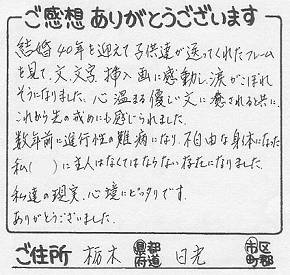 ご感想ありがとうございます
結婚40年を迎えて子供達が送ってくれたフレーム
を見て、文、文字、挿入画に感動し、涙がこぼれ
そうになりました。心温まる優しい文に癒されると共に、
これから先の戒めにも感じられました。
数年前に進行性の難病になり、不自由な身体になった
私(　　)に主人はなくてはならない存在になりました。
私達の現実、心境にピッタリです。
ありがとうございました。
ご住所 栃木 都道府県 日光 市区町郡